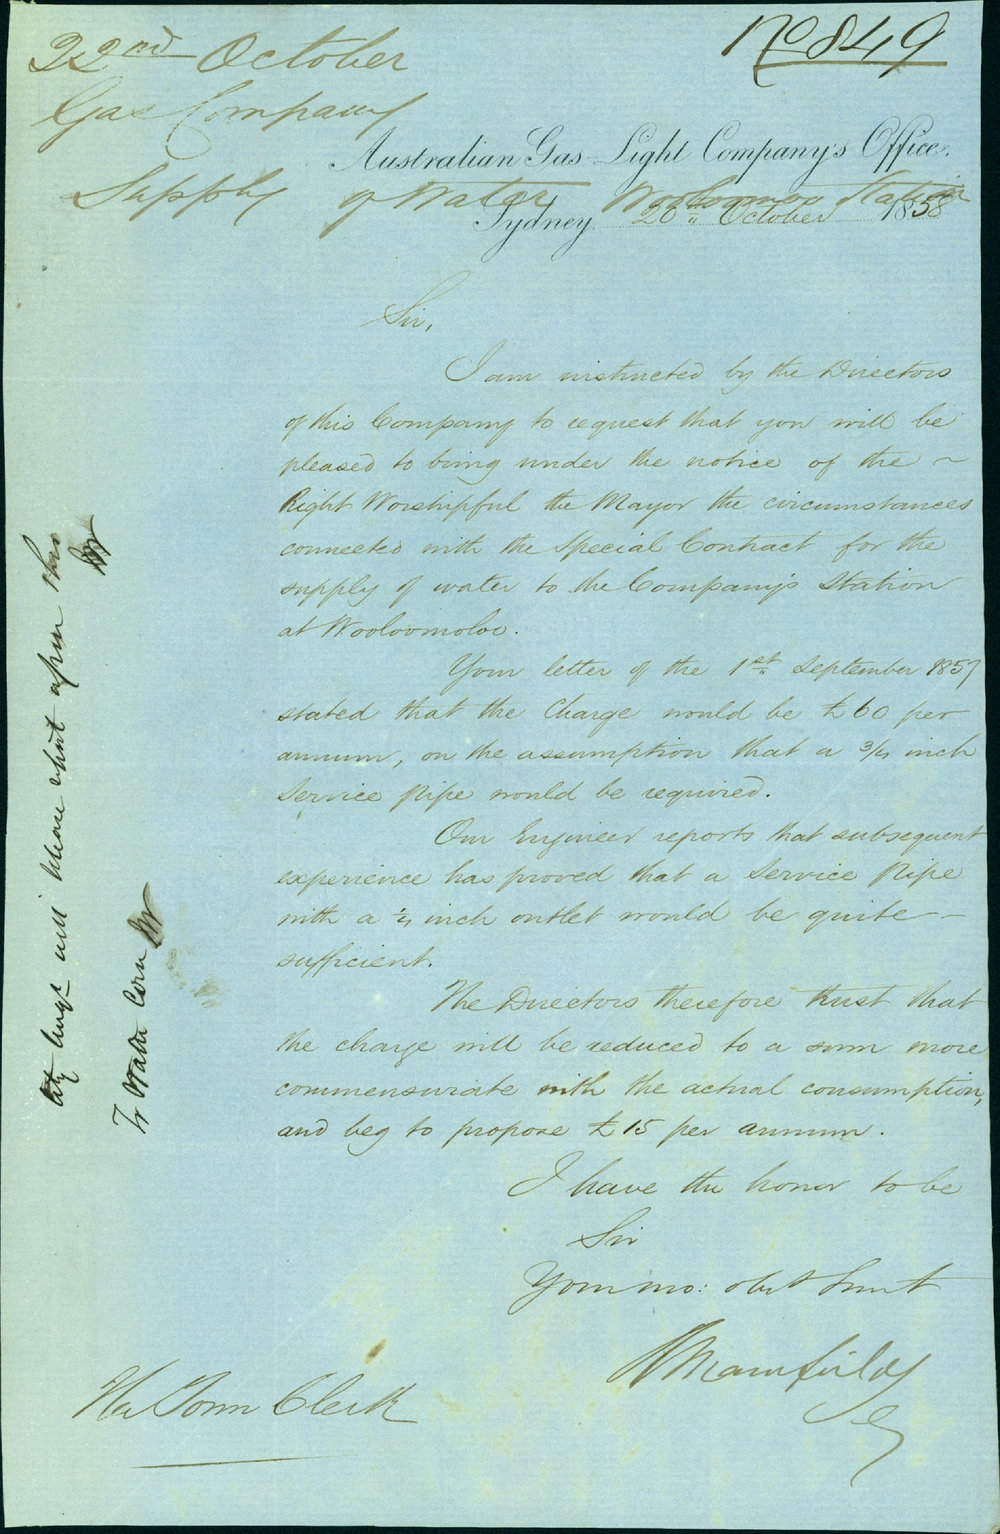 22nd October
No 849
Gas Company
Australian Gas-Light Company's Office.
Supply of Water Wooloomooloo Station
Sydney 20th October 1858
Sir,
I am instructed by the Directors
of this Company to request that you will be
pleased to bring under the notice of the ~
Right Worshipful the Mayor the circumstances
connected with the Special Contract for the
supply of water to the Company's Station
at Wooloomoloo.
Your letter of the 1st September 1857
stated that the Charge would be £60 per
annum, on the assumption that a 3/4 inch
Service Pipe would be required.
Our Engineer reports that subsequent
experience has proved that a Service Pipe
with a 1/4 inch outlet would be quite –
sufficient.
The Directors therefore trust that
the charge will be reduced to a sum more
commensurate with the actual consumption,
and beg to propose £15 per annum.
I have the honor to be
Sir
Your mo: obt Servt
Mansfield
The Town Clerk
City Engr will please report upon this
To Water Com